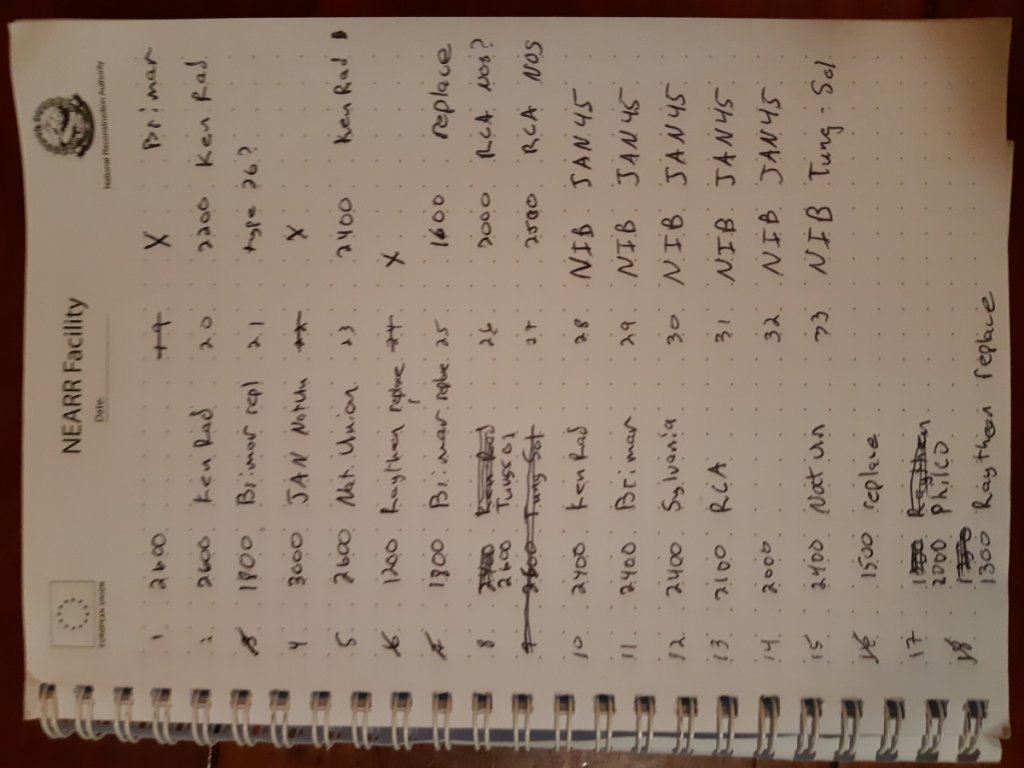 EUROPEAN UNION
NEARR Facility
Date
National Reconstruction Authority
1 2600 X Brimar
2 2600 Ken Rad 20 2200 Ken Rad
3 1800 Brimar repl 21 type 26?
4 3000 JAN Natun X
5 2600 Nat. Union 23 2400 Ken Rad
6 1200 Raytheon replace X
7 1800 Brimar replace 25 1600 replace
8 Ken Rad 26 2000 RCA NOS?
2600 Tungsol
9 2600 Tung Sol 27 2500 RCA NOS
10 2400 Ken Rad 28 NIB JAN 45
11 2400 Brimar 29 NIB JAN 45
12 2400 Sylvania 30 NIB JAN 45
13 2100 RCA 31 NIB JAN 45
14 2000 32 NIB JAN 45
15 2400 Nat Un 33 NIB Tung-Sol
16 1500 replace
17 Raytheon
2000 Philco
18
1300 Raytheon replace